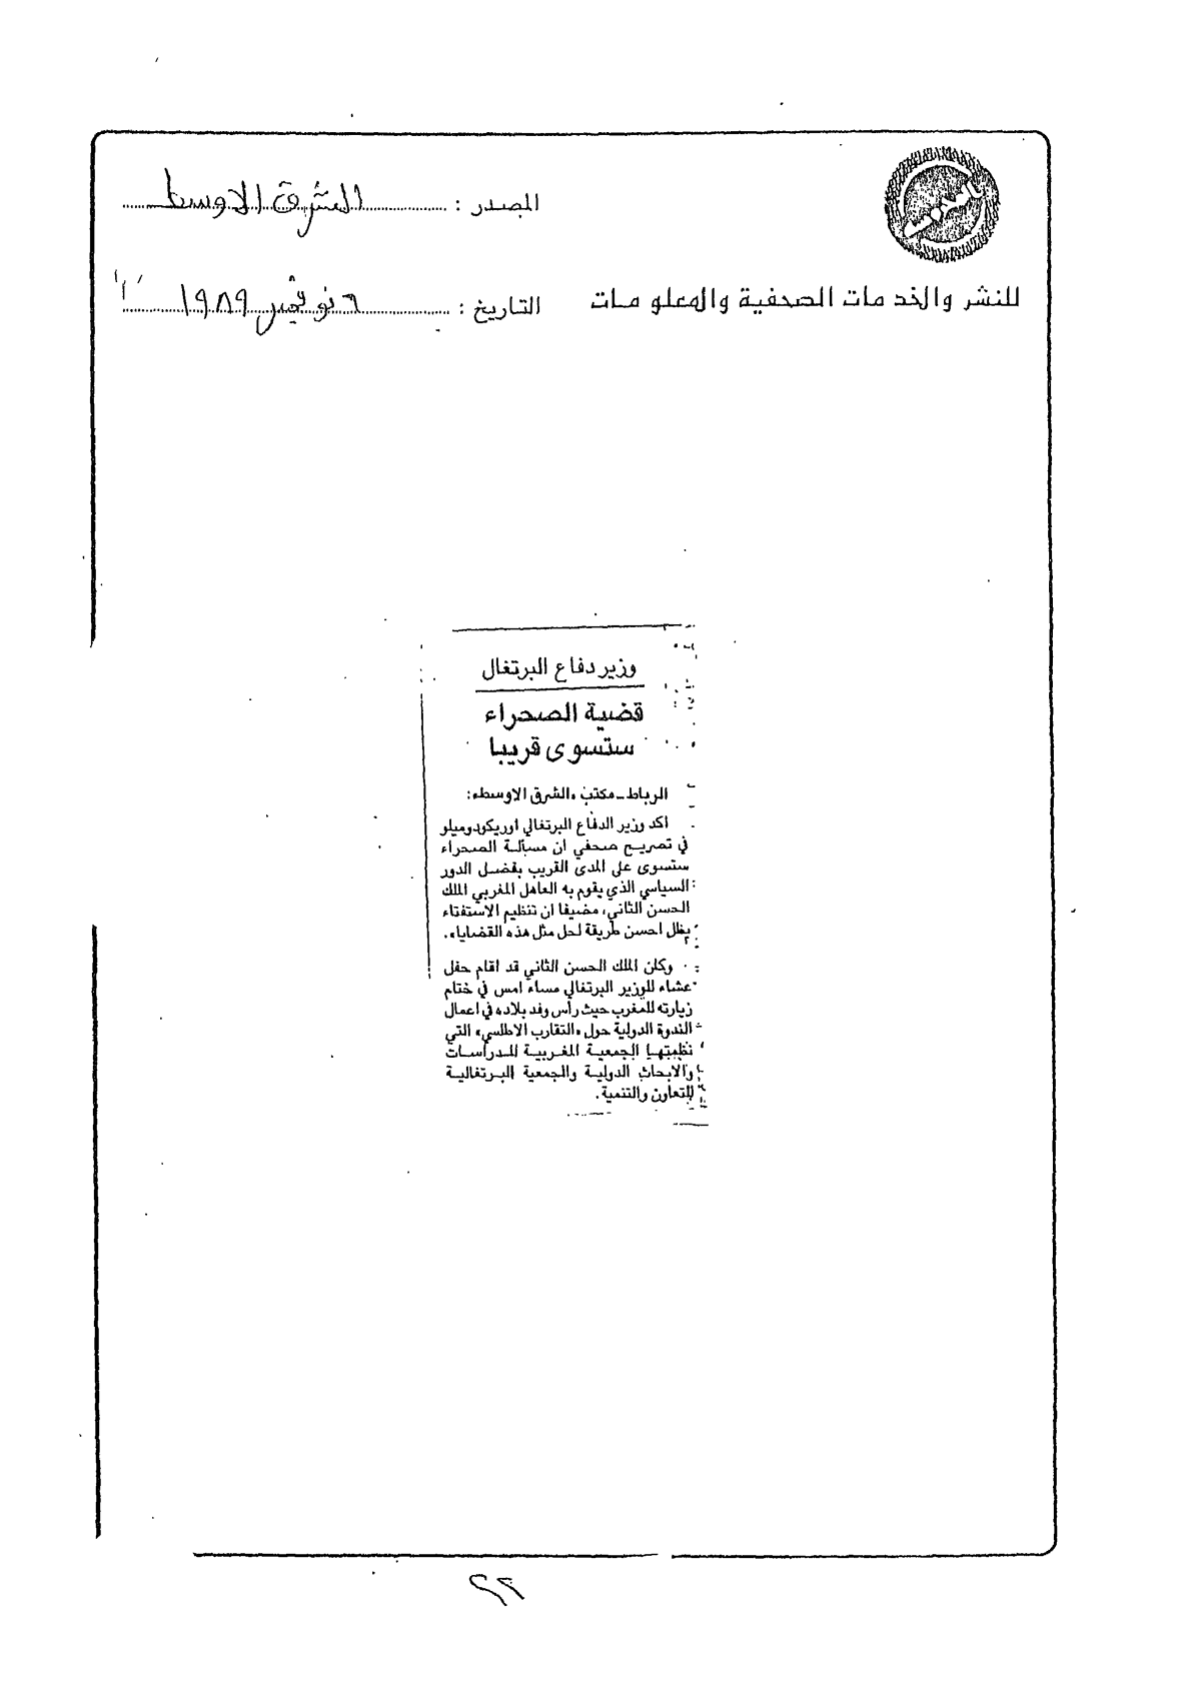 المصدر : الشرق الاوسط
للنشر والخدمات الصحفية والمعلومات
التاريخ : ٦ نوفمبر ١٩٨٩
وزير دفاع البرتغال
قضية الصحراء
ستسوى قريبا
الرباط - مكتب «الشرق الاوسط»:
اكد وزير الدفاع البرتغالي اوريكودوميلو
في تصريح صحفي ان مسألة الصحراء
ستسوى على المدى القريب بفضل الدور
السياسي الذي يقوم به العاهل المغربي الملك
الحسن الثاني، مضيفا ان تنظيم الاستفتاء
يظل احسن طريقة لحل مثل هذه القضايا».
وكان الملك الحسن الثاني قد اقام حفل
عشاء للوزير البرتغالي مساء امس في ختام
زيارته للمغرب حيث رأس وفد بلاده في اعمال
الندوة الدولية حول «التقارب الاطلسي» التي
نظمتها الجمعية المغربية للدراسات
والابحاث الدولية والجمعية البرتغالية
للتعاون والتنمية.